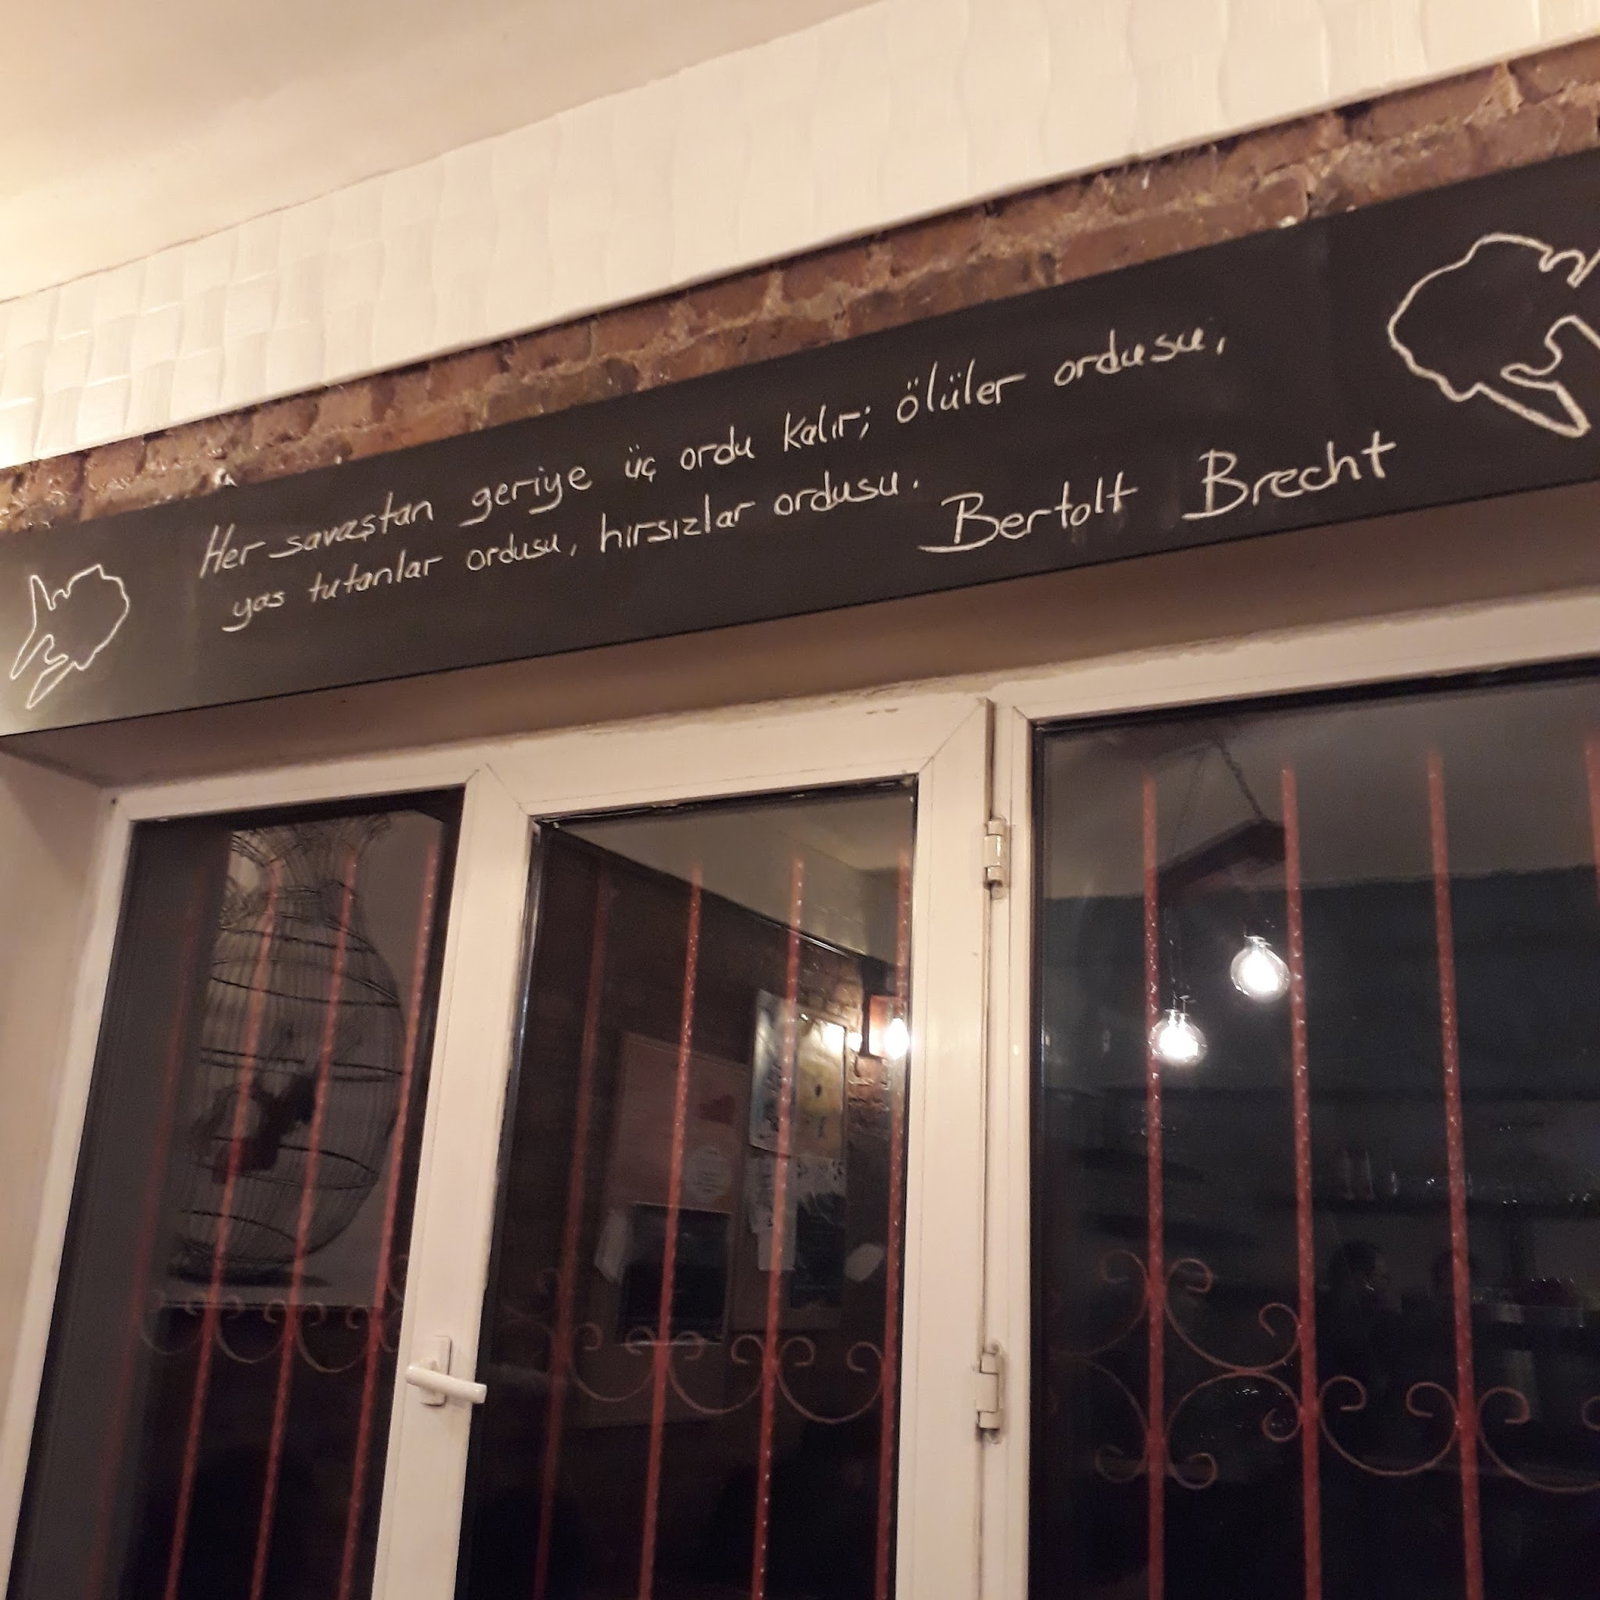 Her savaştan geriye üç ordu kalır; ölüler ordusu,
yas tutanlar ordusu, hırsızlar ordusu.
Bertolt Brecht